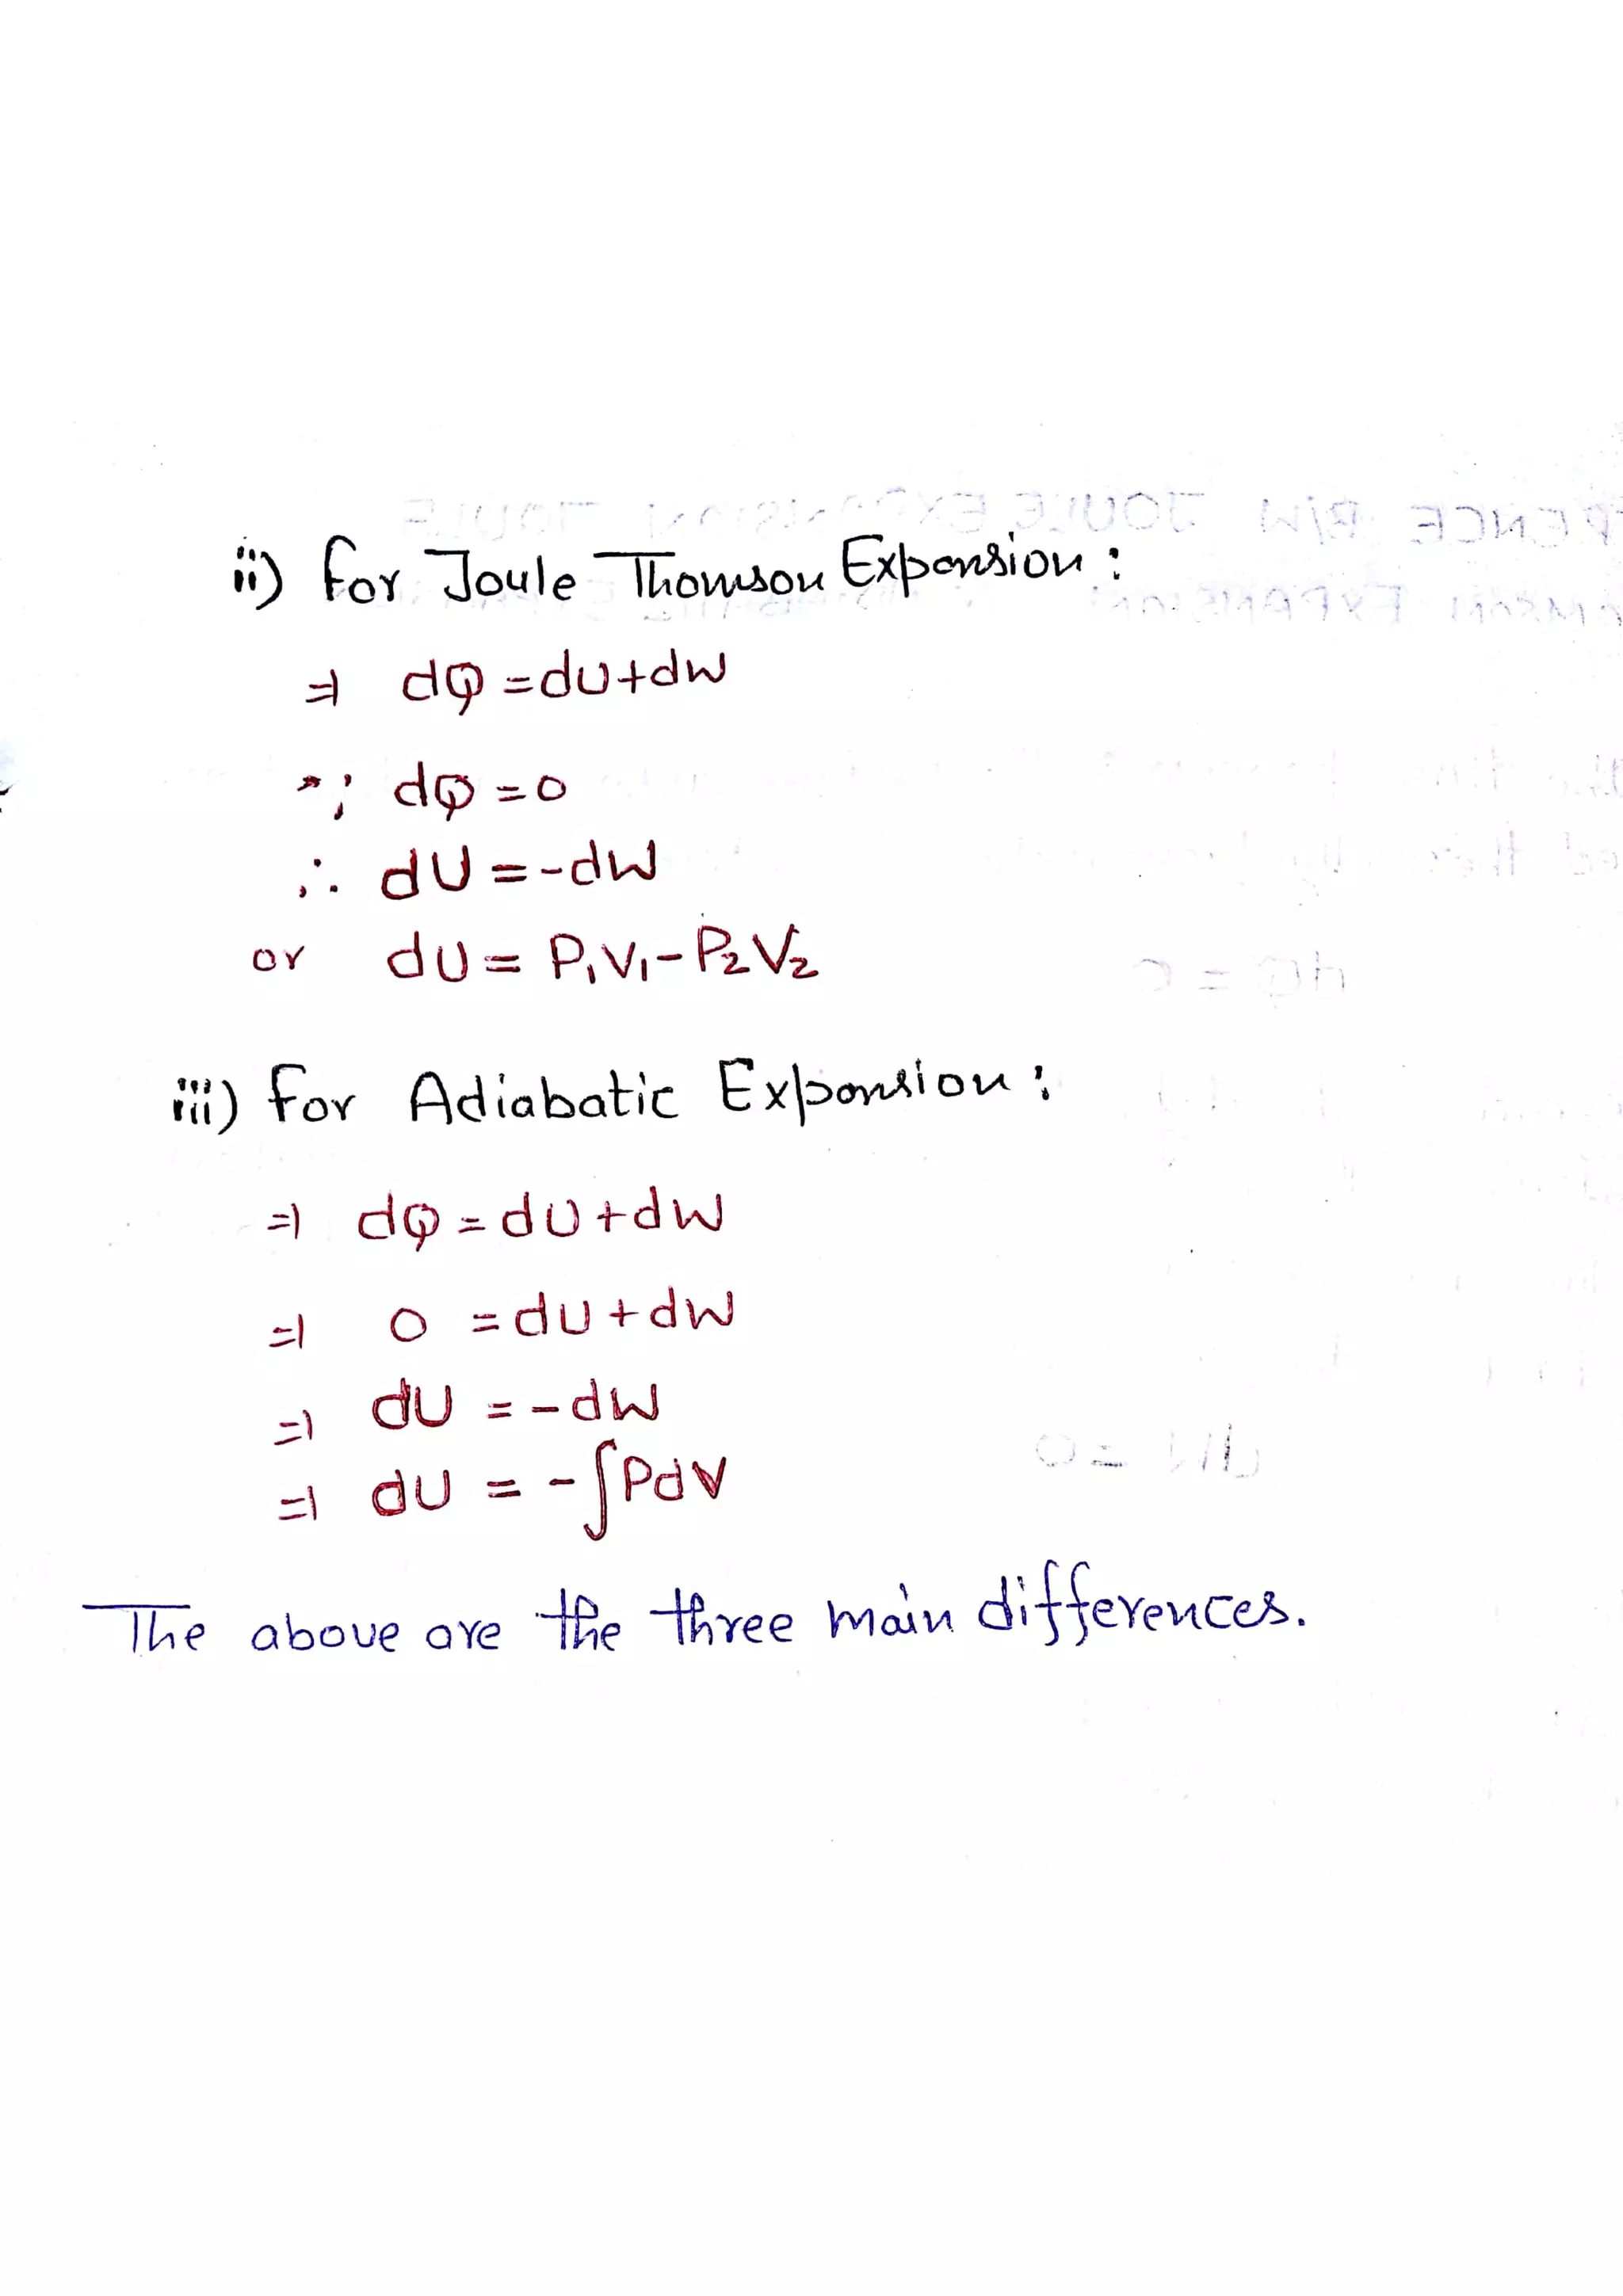 ii) For Joule Thomson Expansion :
⇒ dQ = dU + dW
∵ dQ = 0
∴ dU = -dW
or dU = P₁V₁ - P₂V₂
iii) For Adiabatic Expansion :
⇒ dQ = dU + dW
⇒ 0 = dU + dW
⇒ dU = -dW
⇒ dU = -∫PdV
The above are the three main differences.